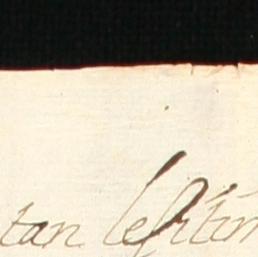 tan lesitim